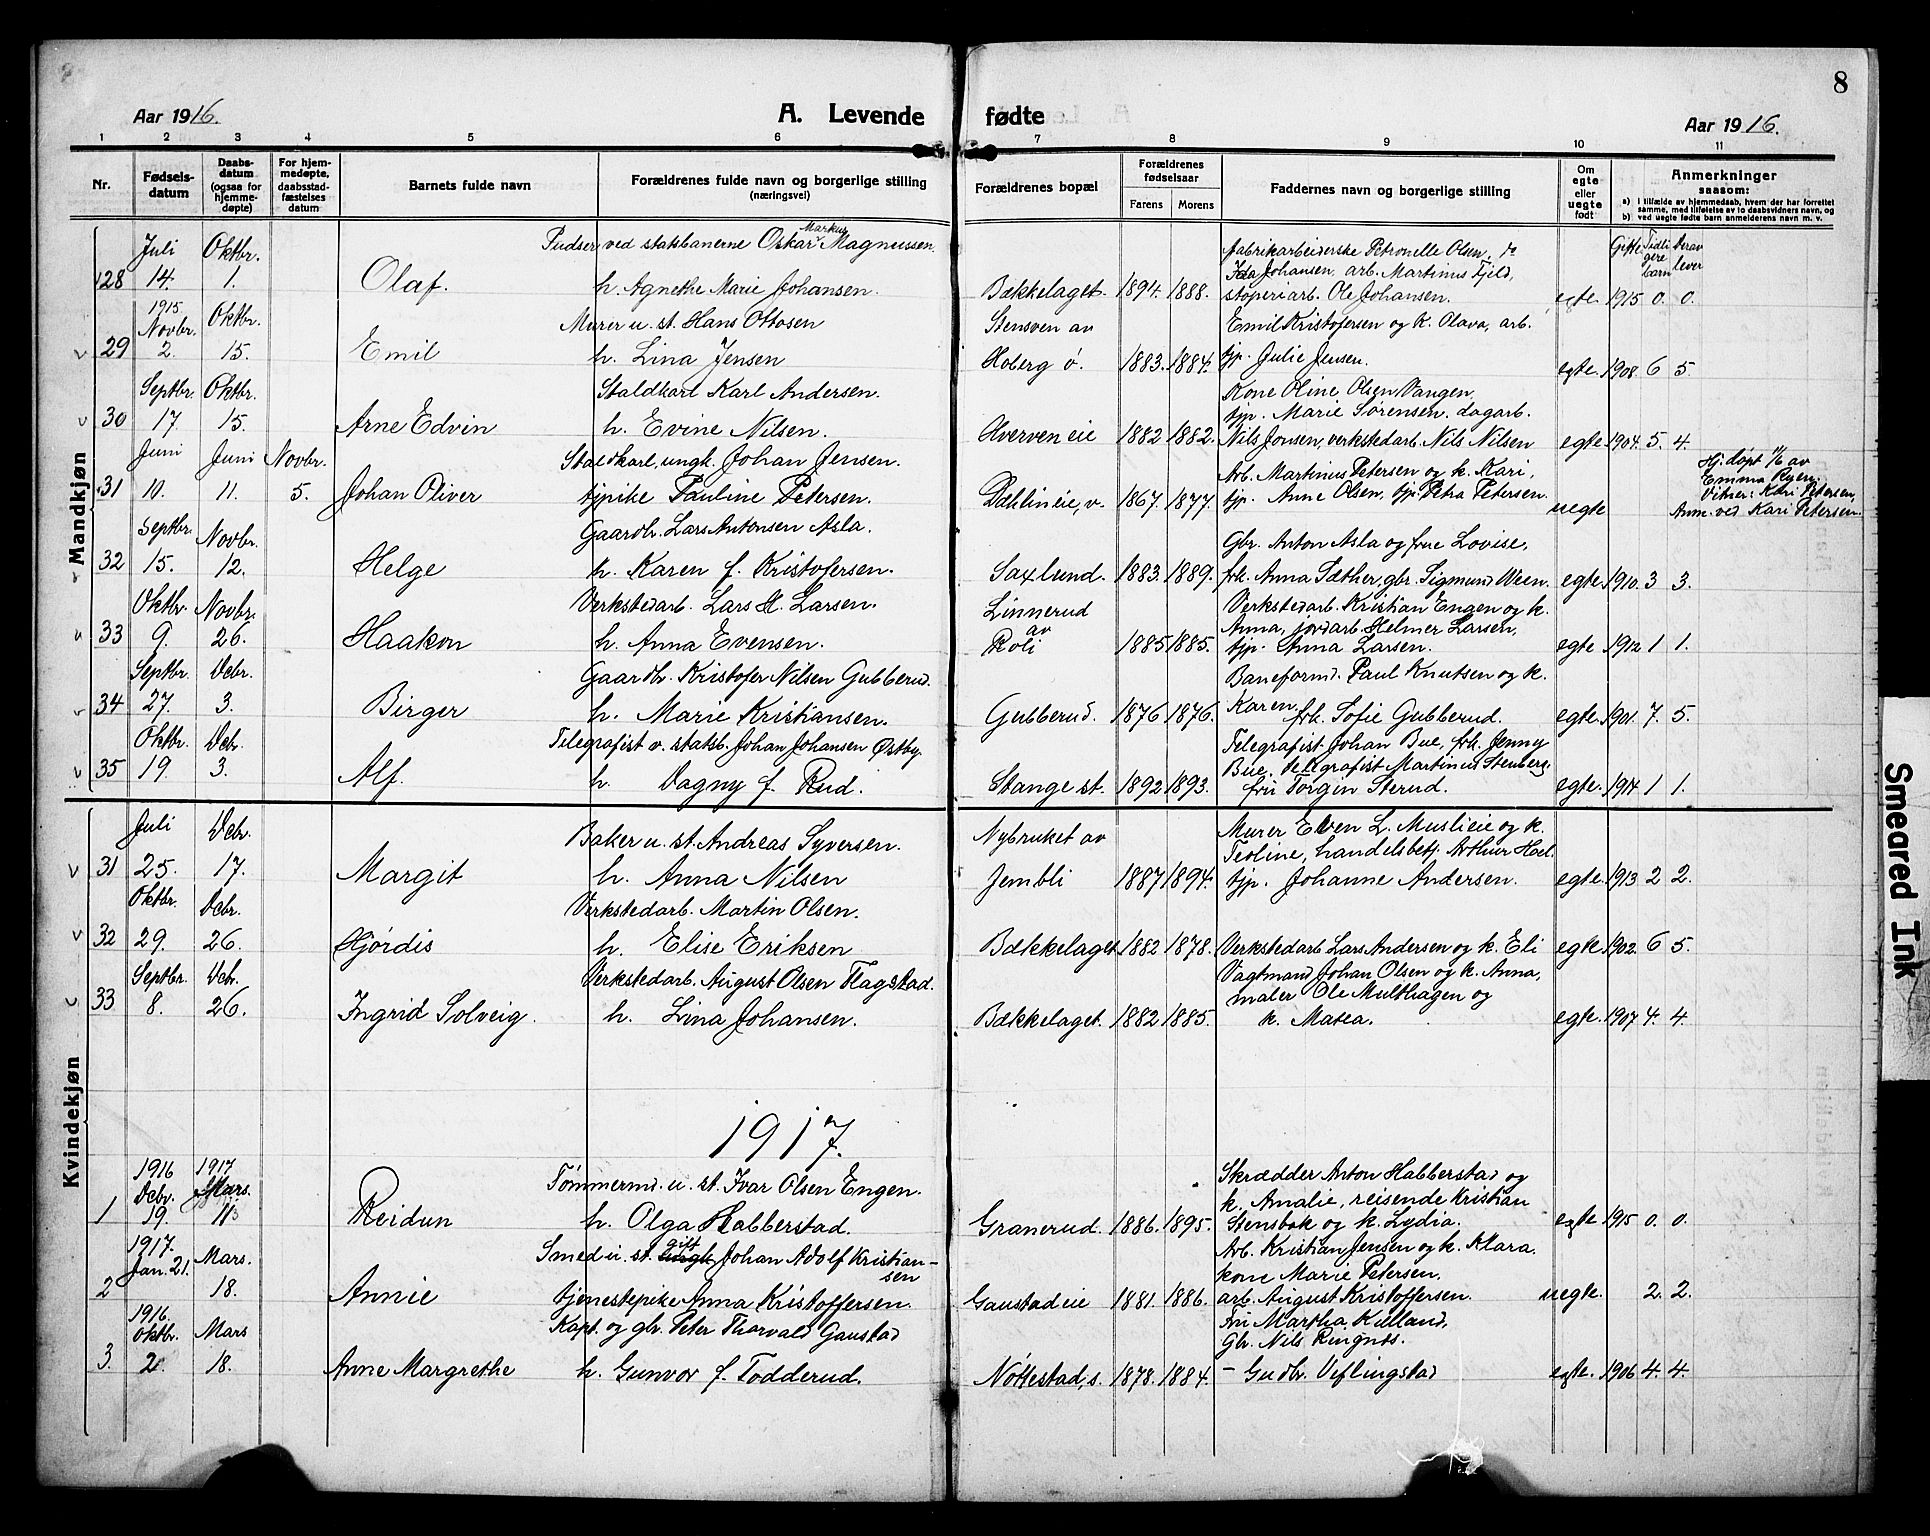 8
Aar 1916.
A. Levende fødte
Aar 1916.
1 2 3 4 5 6 7 8 9 10 11
Nr.
Fødselsdatum
Daabsdatum (ogsaa for hjemmedøpte)
For hjemmedøpte, daabsstadfæstelses datum
Barnets fulde navn
Forældrenes fulde navn og borgerlige stilling (næringsvei)
Forældrenes bopæl
Forældrenes fødselsaar
Farens Morens
Faddernes navn og borgerlige stilling
Om egte eller uegte født
Anmerkninger saasom:
a) I tilfælde av hjemmedaab, hvem der har forrettet samme, med tilføielse av to daabsvidners navn, og
b) ved uegte fødte barn anmelderens navn m. v.
Gifte Tidligere barn Derav lever
Mandkjøn
Juli Oktbr. Pudser ved statsbanerne Oskar Markus Magnussen
fabrikarbeiderske Petronelle Olsen,
128 14. 1. Olaf. h. Agnethe Marie Johansen. Bækkelaget. 1894. 1888. Ida Johansen, arb. Martinus Fjeld,
stoperiarb. Ole Johansen. egte 1915 0. 0.
1915 Novbr. Oktbr. Murer u. st. Hans Ottosen Stensven av Emil Kristofersen og k. Olava, arb.
29 2. 15. Emil h. Lina Jensen Hoberg ø. 1883. 1884. tjp. Julie Jensen. egte. 1908 6 5.
Septbr. Oktbr. Staldkarl Karl Andersen. Kone Oline Olsen Vangen,
tjp. Marie Sørensen. dagarb.
30 17. 15. Arne Edvin h. Evine Nilsen. Averven eie 1882 1882. Nils Jonsen, verkstedarb. Nils Nilsen egte 1904. 5. 4.
Juni Juni Novbr. Staldkarl, ungk. Johan Jensen. Arb. Martinus Petersen og k. Kari,
31 10. 11. 5. Johan Oliver tjpike Pauline Petersen. Dæhlin eie, v. 1867. 1877. tjp. Anne Olsen, tjp. Petra Petersen. uegte
Hj. døpt 11/6 av
Emma Ryen;
Vitner: Kari Petersen,
Anm. ved Kari Petersen.
Septbr. Novbr. Gaardbr. Lars Antonsen Asla. Gbr. Anton Asla og frue Lovise,
32 15. 12. Helge h. Karen f. Kristofersen. Saxlund. 1883. 1889. frk. Anna Sæther, gbr. Sigmund Ween. egte. 1910. 3 3.
Oktbr. Novbr. Verkstedarb. Lars H. Larsen. Linnerud av Verkstedarb. Kristian Engen og k.
Anna, jordarb. Helmer Larsen,
33 9. 26. Haakon h. Anna Evensen. Roli 1885 1885. tjp. Anna Larsen. egte 1912 1 1.
Septbr. Debr. Gaardbr. Kristofer Nilsen Gubberud. Baneformd. Paul Knutsen og k.
34 27. 3. Birger h. Marie Kristiansen. Gubberud. 1876 1876. Karen, frk. Sofie Gubberud. egte. 1901. 7. 5.
Oktbr. Debr. Telegrafist v. statsb. Johan Johansen Østby. Telegrafist Johan Bue, frk. Jenny
Bue, telegrafist Martinus Stenberg,
35 19. 3. Alf. h. Dagny f. Rud. Stange st. 1892 1893. frk Torgin Sterud. egte. 1914 1 1.
Kvindekjøn
Juli Debr. Baker u. st. Andreas Syversen. Nybruket av Murer Even L. Muslieie og k.
Teoline, handelsbetj. Arthur Hoel.
31 25. 17. Margit h. Anna Nilsen Jembli 1887 1894. tjp. Johanne Andersen. egte. 1913 2 2.
Oktbr. Debr. Verkstedarb. Martin Olsen.
32 29. 26. Hjørdis h. Elise Eriksen Bækkelaget 1882 1878. Verkstedarb. Lars Andersen og k. Eli egte. 1902. 6 5.
Septbr. Debr. Verkstedarb. August Olsen Flagstad. Vagtmand Johan Olsen og k. Anna,
maler Ole Multhagen og
33 8. 26. Ingrid Solveig. h. Lina Johansen. Bækkelaget. 1882 1885. k. Matea. egte. 1907 4. 4.
1917.
1916 Debr. 1917 Mars. Tømmermd. u. st. Ivar Olsen Engen. Skrædder Anton Habberstad og
k. Amalie, reisende Kristian
1 19. 11. Reidun h. Olga Habberstad. Granerud. 1886. 1895. Stensbak og k. Lydia. egte 1915 0. 0.
1917. Jan. 21. Mars. Smed u. st. gift Johan Adolf Kristiansen Arb. Kristian Jensen og k. Klara.
kone Marie Petersen,
2 18. Annie tjenestepike Anna Kristoffersen. Gaustad eie 1881. 1886. arb. August Kristoffersen. uegte. 2. 2.
1916. Oktbr. Mars Kapt. og gbr. Peter Thorvald Gaustad Fru Martha Kielland,
Gbr. Nils Ringnes.
3. 2. 18. Anne Margrethe h. Gunvor f. Todderud. Nøttestad, s. 1878. 1884. – Gudbr. Viflingstad egte. 1906 4. 4.
Smeared Ink